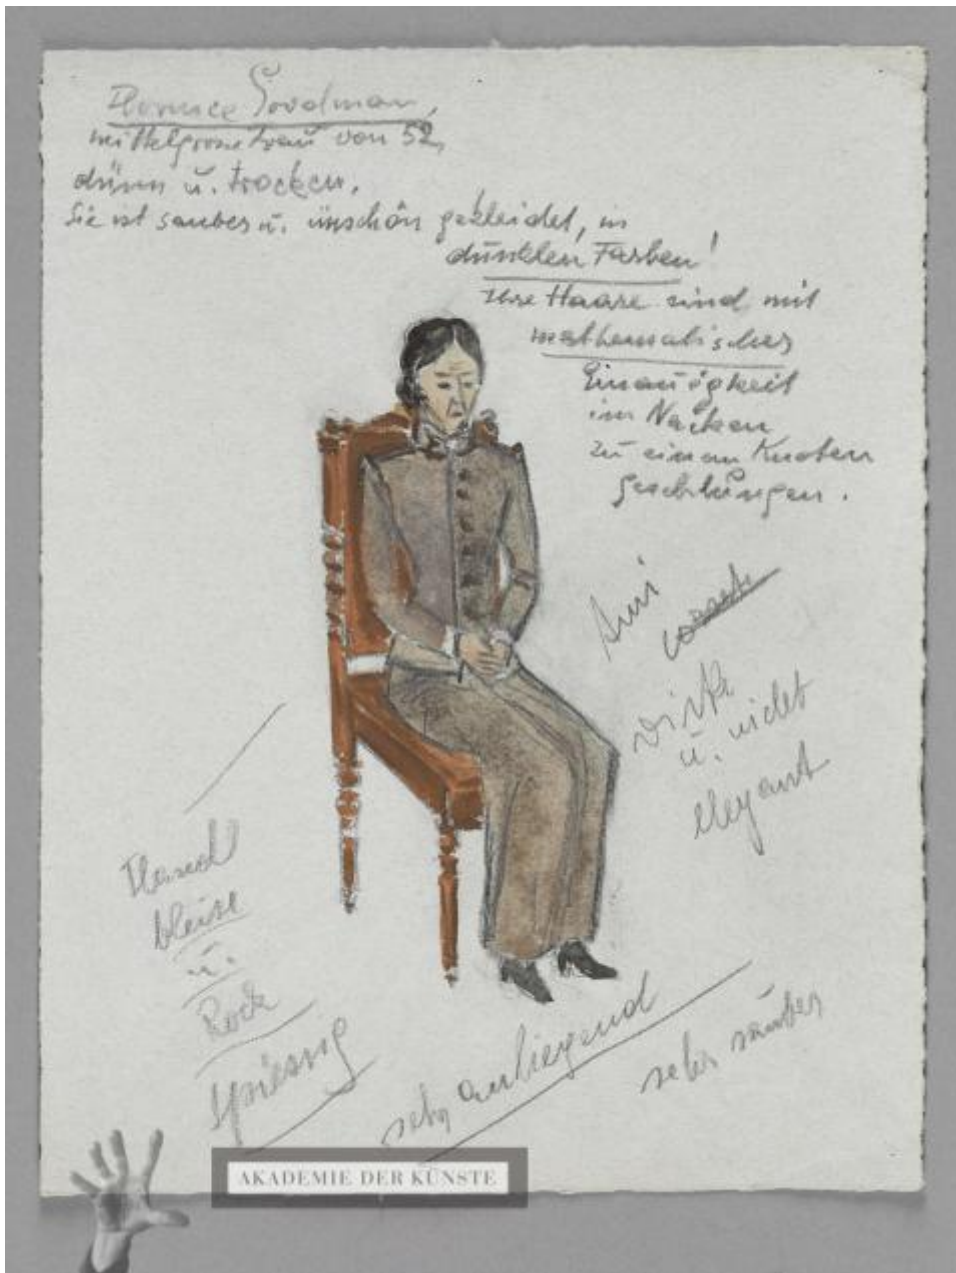 Florence Goodman,
mittelgrosse Frau von 52,
dünn u. trocken.
Sie ist sauber u. unschön gekleidet, in
dunklen Farben!
Ihre Haare sind mit
mathematischer
im Nacken
zu einem Knoten
geschlungen.
u. nicht
elegant
bleise
u.
Rock
spiessig
sehr anliegend
sehr sauber
AKADEMIE DER KÜNSTE